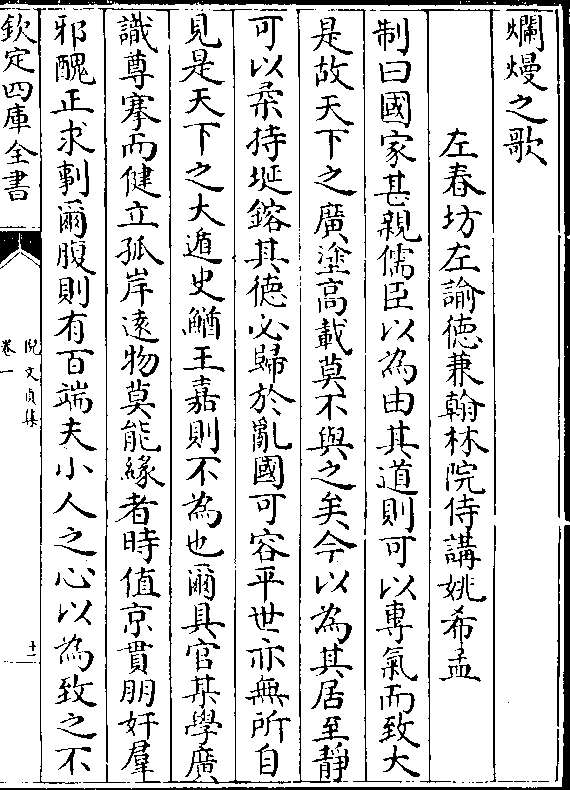 爛熳之歌
左春坊左諭德兼翰林院侍講姚希孟
制曰國家甚親儒臣以為由其道則可以專氣而致大
是故天下之廣塗高載莫不與之矣今以為其居至靜
可以柔持埏鎔其德必歸於亂國可容平世亦無所自
見是天下之大遁史鰌王嘉則不為也爾具官某學廣
識尊搴而健立孤岸遠物莫能緣者時值京貫朋奸羣
邪醜正求剚爾腹則有百端夫小人之心以為致之不
欽定四庫全書
倪文貞集
卷一
十一